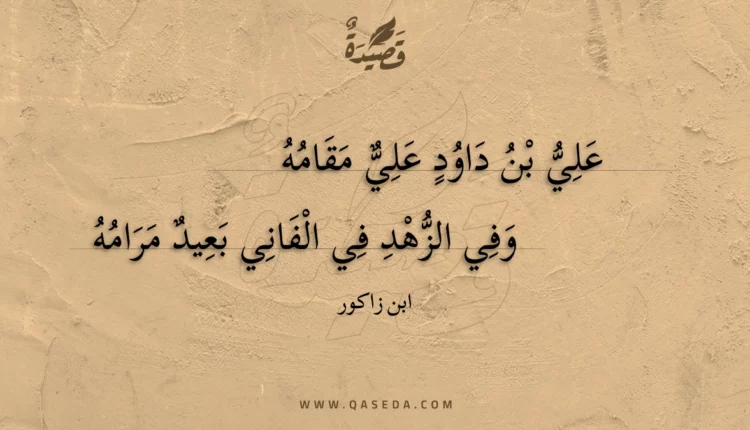 قَصِيْدَةٌ
عَلِيُّ بْنُ دَاوُدٍ عَلِيٌّ مَقَامُهُ
وَفِي الزُّهْدِ فِي الْفَانِي بَعِيدٌ مَرَامُهُ
ابن زاكور
WWW.QASEDA.COM